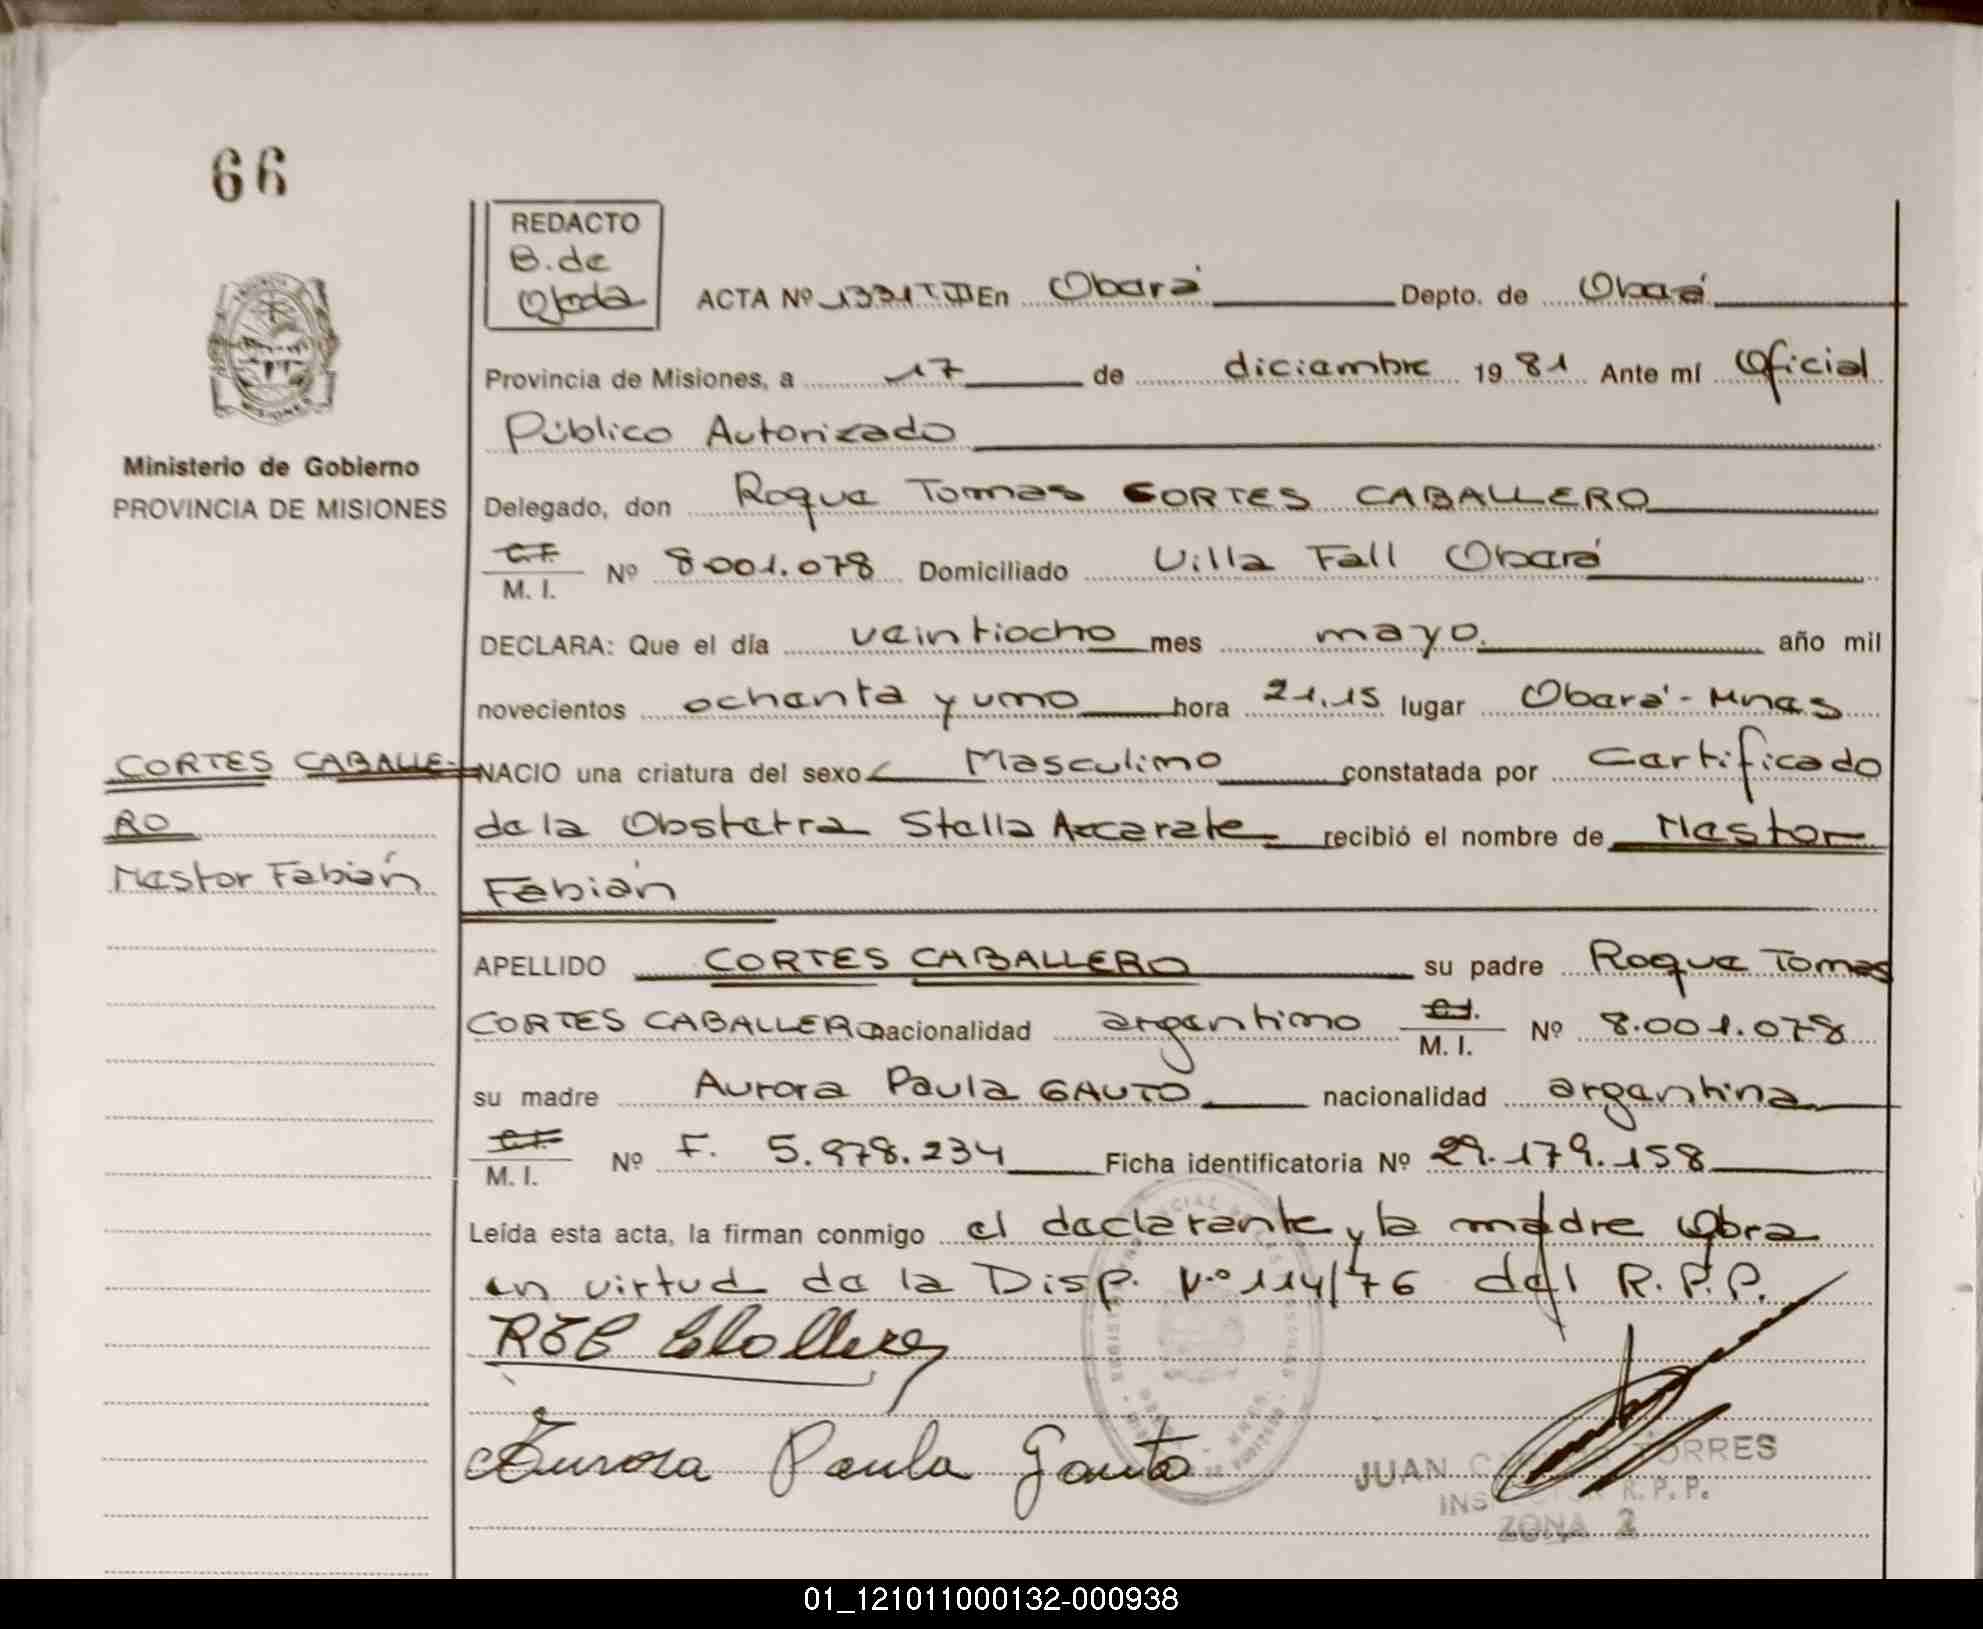 66
REDACTO
B. de
Ojeda
ACTA Nº 1331 T III En Oberá Depto. de Oberá
Provincia de Misiones, a 17 de diciembre 19 81 Ante mí Oficial
Público Autorizado
Ministerio de Gobierno
PROVINCIA DE MISIONES
Delegado, don Roque Tomas CORTES CABALLERO
C.I. M. I. Nº 8.001.078 Domiciliado Villa Fall Oberá
DECLARA: Que el día veintiocho mes mayo año mil
novecientos ochenta y uno hora 21,15 lugar Oberá - Mnes
CORTES CABALLE-
RO
Nestor Fabián
NACIO una criatura del sexo Masculino constatada por Certificado
de la Obstetra Stella Azcarate recibió el nombre de Nestor
Fabián
APELLIDO CORTES CABALLERO su padre Roque Tomas
CORTES CABALLERO nacionalidad argentino C.I. M. I. Nº 8.001.078
su madre Aurora Paula GAUTO nacionalidad argentina
C.I. M. I. Nº F. 5.978.234 Ficha identificatoria Nº 29.179.158
Leída esta acta, la firman conmigo el declarante y la madre Obra
en virtud de la Disp. Nº 114/76 del R.P.P.
Aurora Paula Gauto
JUAN TORRES
R. P. P.
ZONA 2
01_121011000132-000938